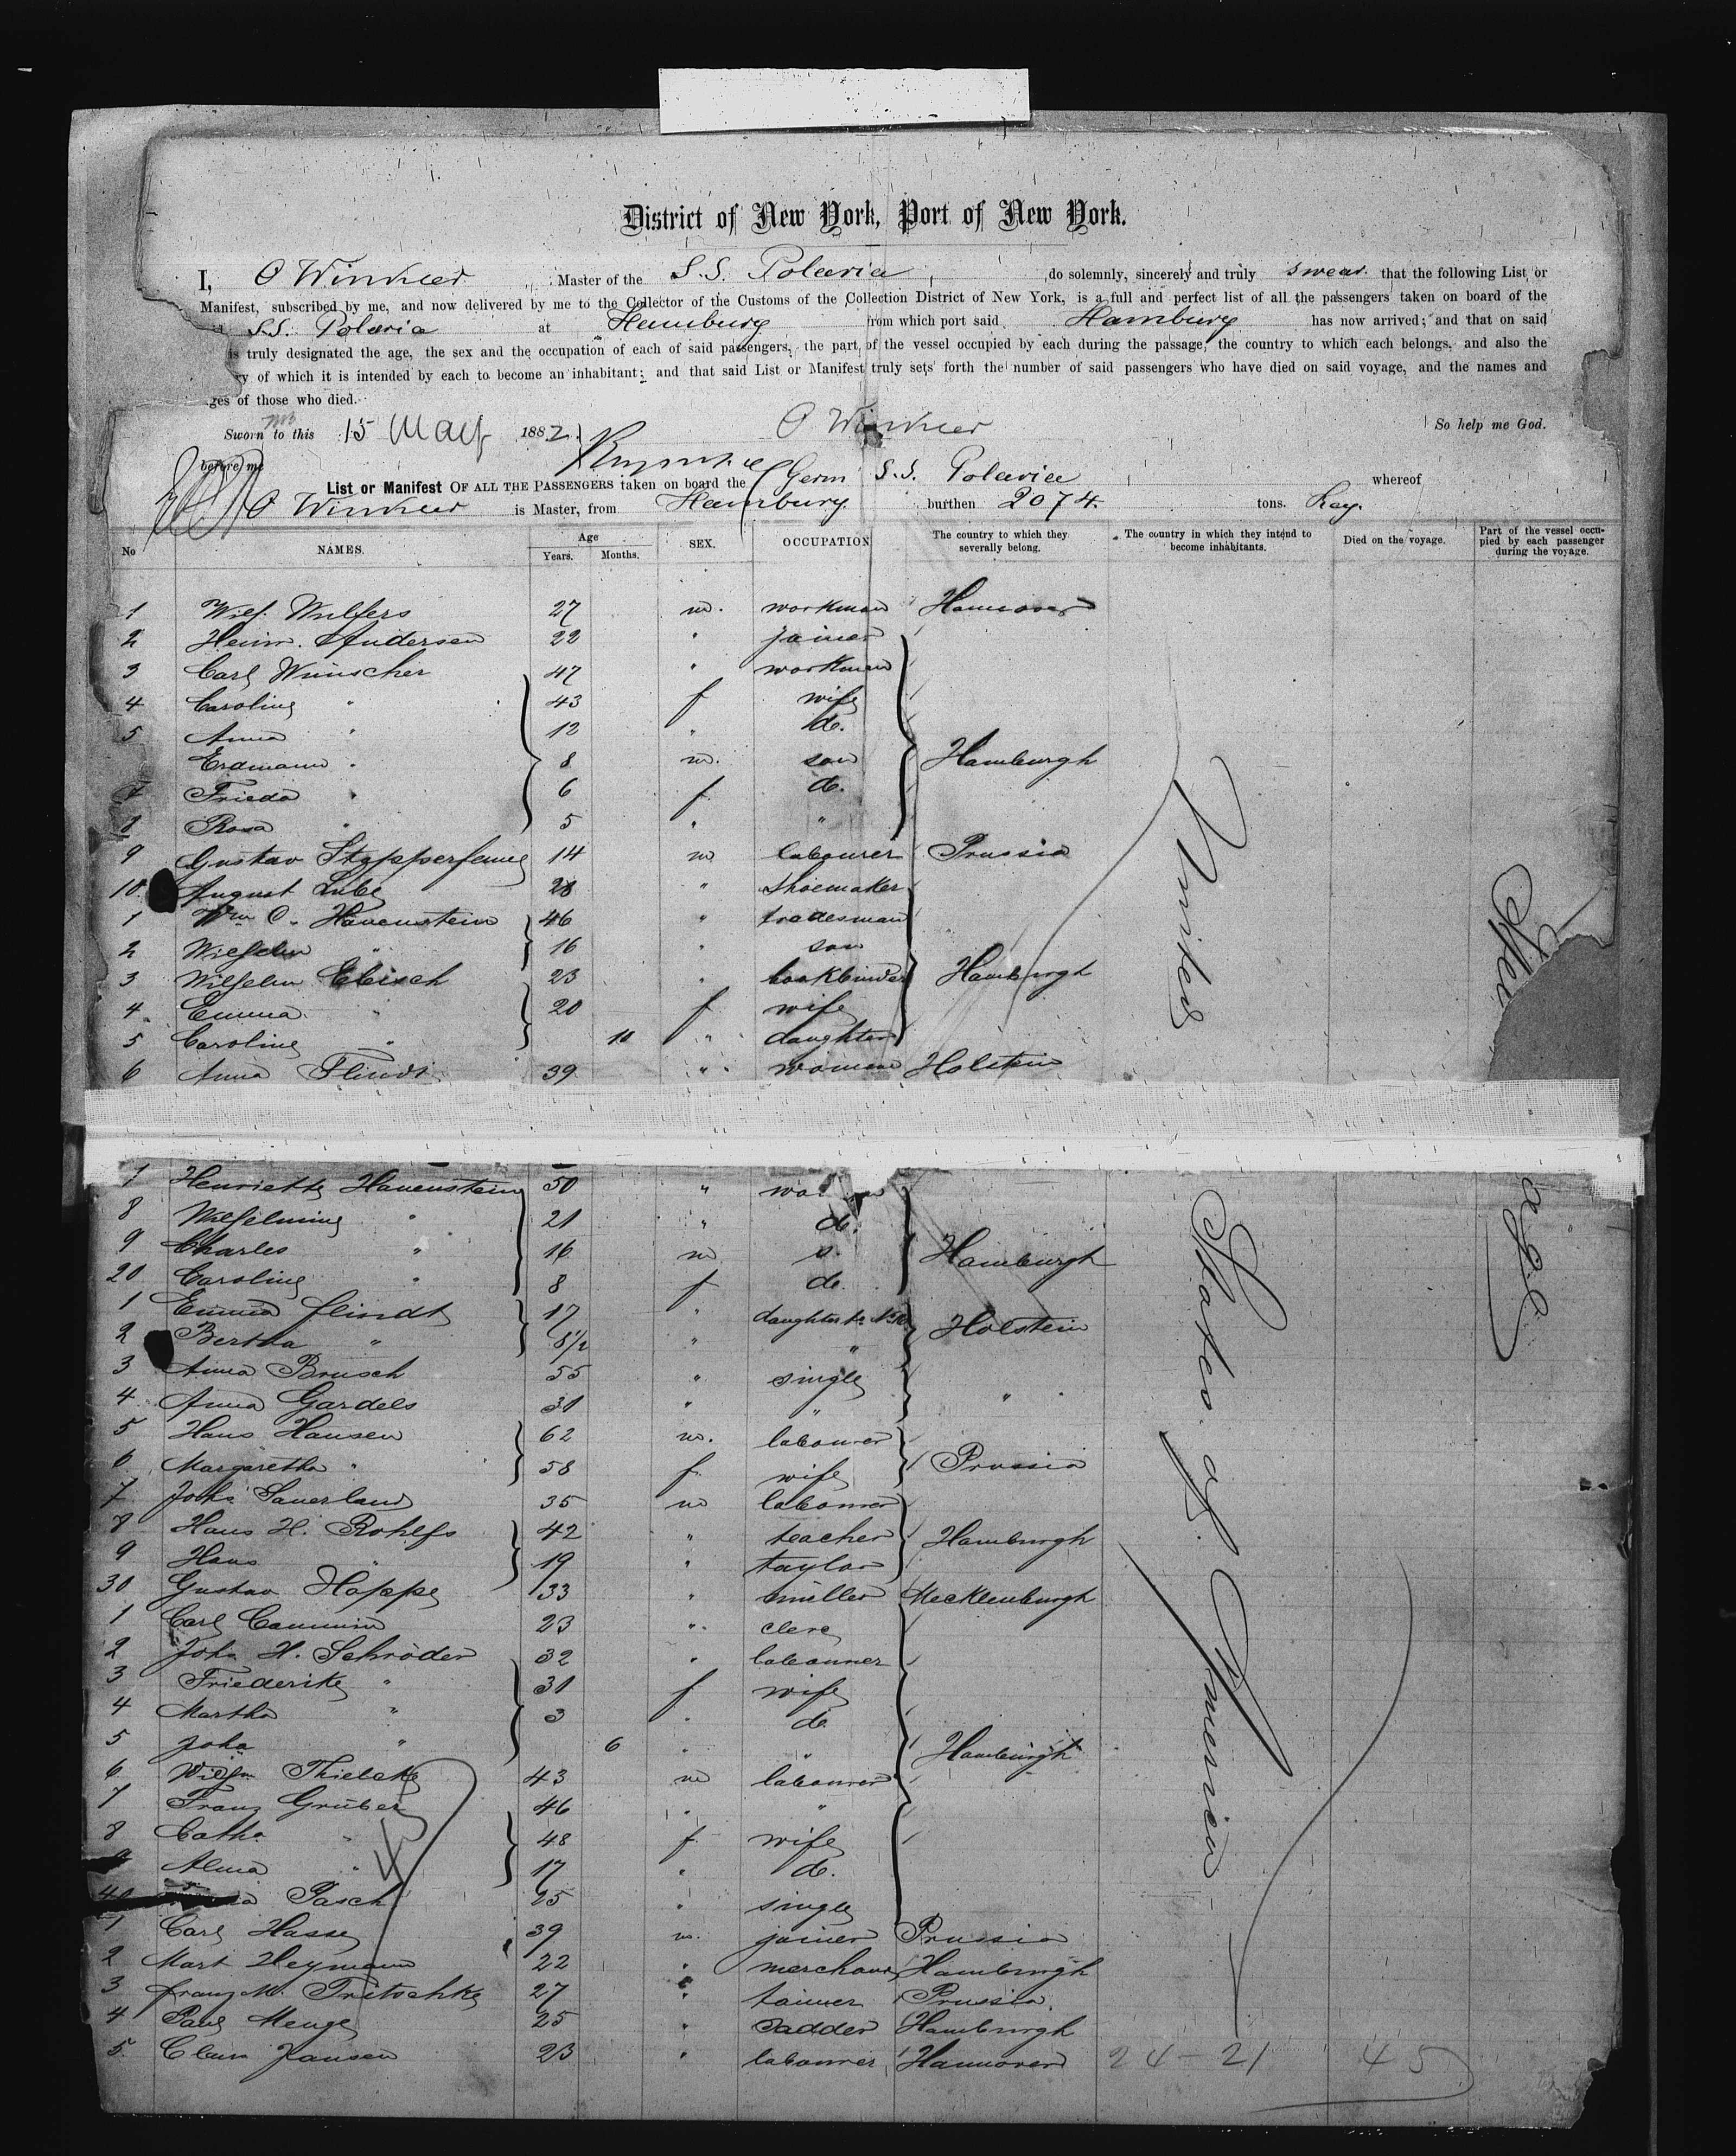 District of New York, Port of New York.
I, O Winkler Master of the S.S. Polaria do solemnly, sincerely and truly swear that the following List or
Manifest, subscribed by me, and now delivered by me to the Collector of the Customs of the Collection District of New York, is a full and perfect list of all the passengers taken on board of the
S.S. Polaria at Hamburg from which port said Hamburg has now arrived; and that on said
is truly designated the age, the sex and the occupation of each of said passengers, the part of the vessel occupied by each during the passage, the country to which each belongs, and also the
ry of which it is intended by each to become an inhabitant; and that said List or Manifest truly sets forth the number of said passengers who have died on said voyage, and the names and
ges of those who died.
So help me God.
Sworn to this 15 May 1882 O Winkler
before me
List or Manifest OF ALL THE PASSENGERS taken on board the Germ S.S. Polaria whereof
O Winkler is Master, from Hamburg burthen 2074 tons.
No NAMES. Age Years. Months. SEX. OCCUPATION The country to which they severally belong. The country in which they intend to become inhabitants. Died on the voyage. Part of the vessel occupied by each passenger during the voyage.
1 Wilh. Wulfers 27 m. workman Hannover
2 Heinr. Andersen 22 " joiner
3 Carl Wünscher 47 " workman
4 Caroline " 43 f wife
5 Anna " 12 " do.
Erdmann " 8 m. son Hamburgh
7 Frieda " 6 f do.
8 Rosa " 5 " "
9 Gustav 14 m labourer Prussia
10 August Lube 28 " shoemaker
1 Wm C. Havenstein 46 " tradesman
2 Wilhelm " 16 " son
3 Wilhelm Elbisch 23 " bookbinder Hamburgh
4 Emma " 20 f wife
5 Caroline " 10 " daughter
6 Anna Flindt 39 " woman Holstein
7 Henriette Havenstein 50 "
8 Wilhelmine " 21 " do.
9 Charles " 16 m s. Hamburgh
20 Caroline " 8 f do.
1 Emma Flindt 17 " daughter to No 16 Holstein
2 Bertha " 8 1/2 " "
3 Anna Brusch 55 " single
4 Anna Gardels 31 " " "
5 Hans Hansen 62 m. labourer
6 Margaretha " 58 f wife Prussia
7 Johs Sauerland 35 m labourer
8 Hans H. Rohlfs 42 " teacher Hamburgh
9 Hans " 19 " taylor
30 Gustav Hoppe 33 " müller Mecklenburgh
1 Carl Cammin 23 " clerc
2 Johs H. Schröder 32 " labourer
3 Friederike " 31 f wife
4 Martha " 3 " do
5 Joha " 6 " " Hamburgh
6 Wilhm Thielcke 43 m labourer
7 Franz Gruber 46 " "
8 Catha " 48 f wife
9 Alma " 17 " do.
40 Pasch 25 " single
1 Carl Hasse 39 m. joiner Prussia
2 Mart Heymann 22 " merchant Hamburgh
3 Franz M. Fritschke 27 " Prussia
4 Paul Menge 25 " Hamburgh
5 Claus Jansen 23 " labourer Hannover
United States of America
24 - 21 45